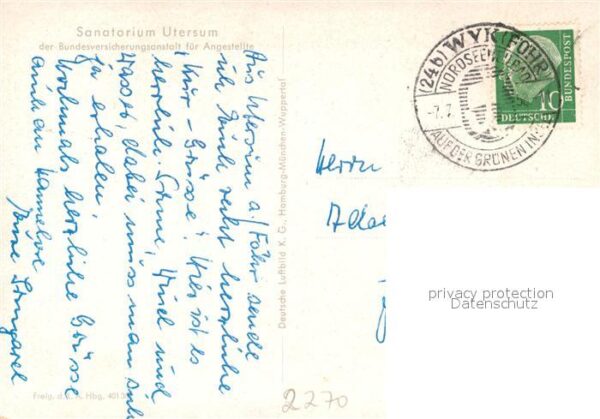 Sanatorium Utersum
der Bundesversicherungsanstalt für Angestellte
Aus Utersum a./Föhr sende
ich Euch recht herzliche
Kur-Grüsse! Hier ist es
herrlich. Sonne, Wind und
Wasser, dabei muss man sich
ja erholen.
Nochmals herzliche Grüsse
Deutsche Luftbild K. G., Hamburg-München-Wuppertal
Freig. d. Hbg. 4013
(24b) WYK (FÖHR)
NORDSEEHEILBAD
-7.7
AUF DER GRÜNEN INSEL
10
DEUTSCHE
BUNDESPOST
Herrn
privacy protection
Datenschutz
2270